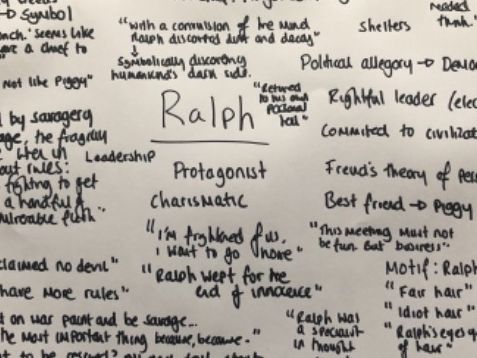 → Symbol
"With a convulsion of the mind
Ralph discarded dust and decay"
↓
Symbolically discarding
humankind's dark side.
Shelters
needed
think."
seems like
a chief to
Not like Piggy"
"Returned
to his own
personal
hell"
Political allegory →
Ralph
Rightful leader
Commited to
by savagery
the fragility
Leadership
rules:
fighting to get
a handful of
Protagonist
Charismatic
Freud's Theory of
Best friend → Piggy
"I'm frightened of us.
I want to go home"
"This meeting must not
be fun. But business"
claimed no devil"
"Ralph wept for the
end of innocence"
Motif: Ralph
have more rules"
"Fair hair"
"Idiot hair"
on war paint and be savage...
the most important thing because, because-"
"Ralph was
a specialist
in thought
"Ralph's eyes
hair"